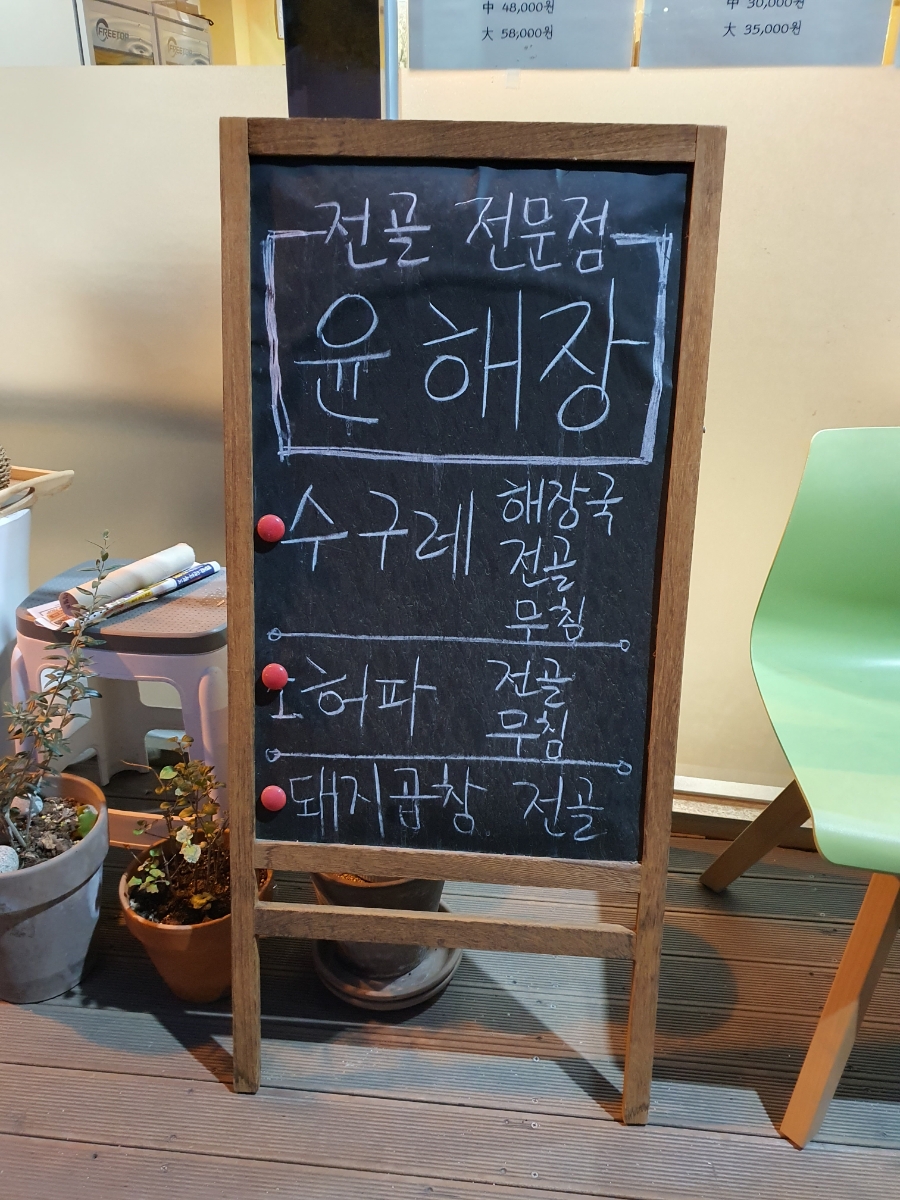 FREETOP
FREETOP
中 48,000원
大 58,000원
中 30,000원
大 35,000원
전골 전문점
윤해장
수구레 해장국
전골
무침
오허파 전골
무침
돼지곱창 전골